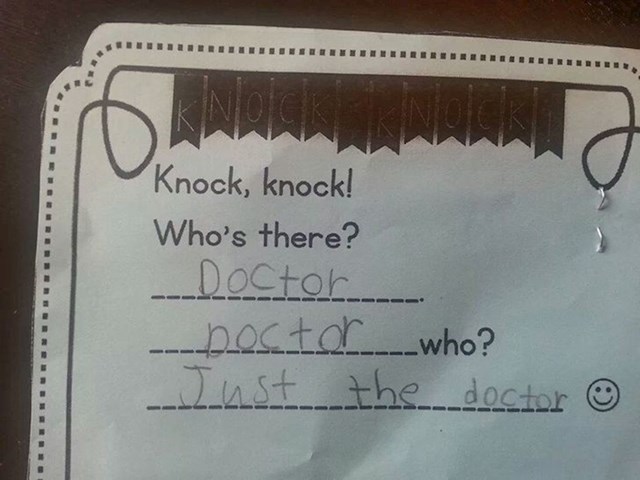 KNOCK KNOCK!
Knock, knock!
Who's there?
Doctor.
Doctor who?
Just the doctor